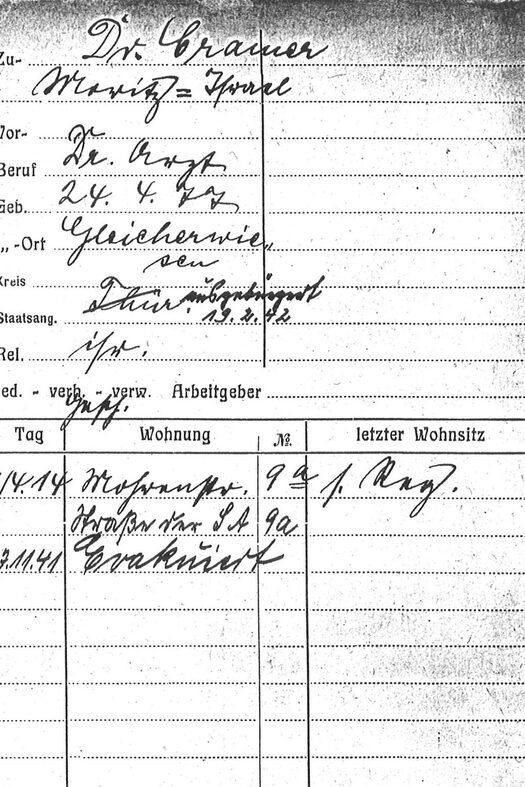 Zu- Dr. Cramer
Moritz = Israel
Vor-
Beruf Dr. Arzt
Geb. 24. 4. 77
„ -Ort Gleicherwie„
sen
Kreis
Thür. ausgebürgert
Staatsang. 19.2.42
Rel. isr.
led. - verh. - verw. Arbeitgeber
gesch.
Tag Wohnung № letzter Wohnsitz
/4.14 Mohrenstr. 9a s. Reg.
Straße der SA 9a
7.11.41 Evakuiert